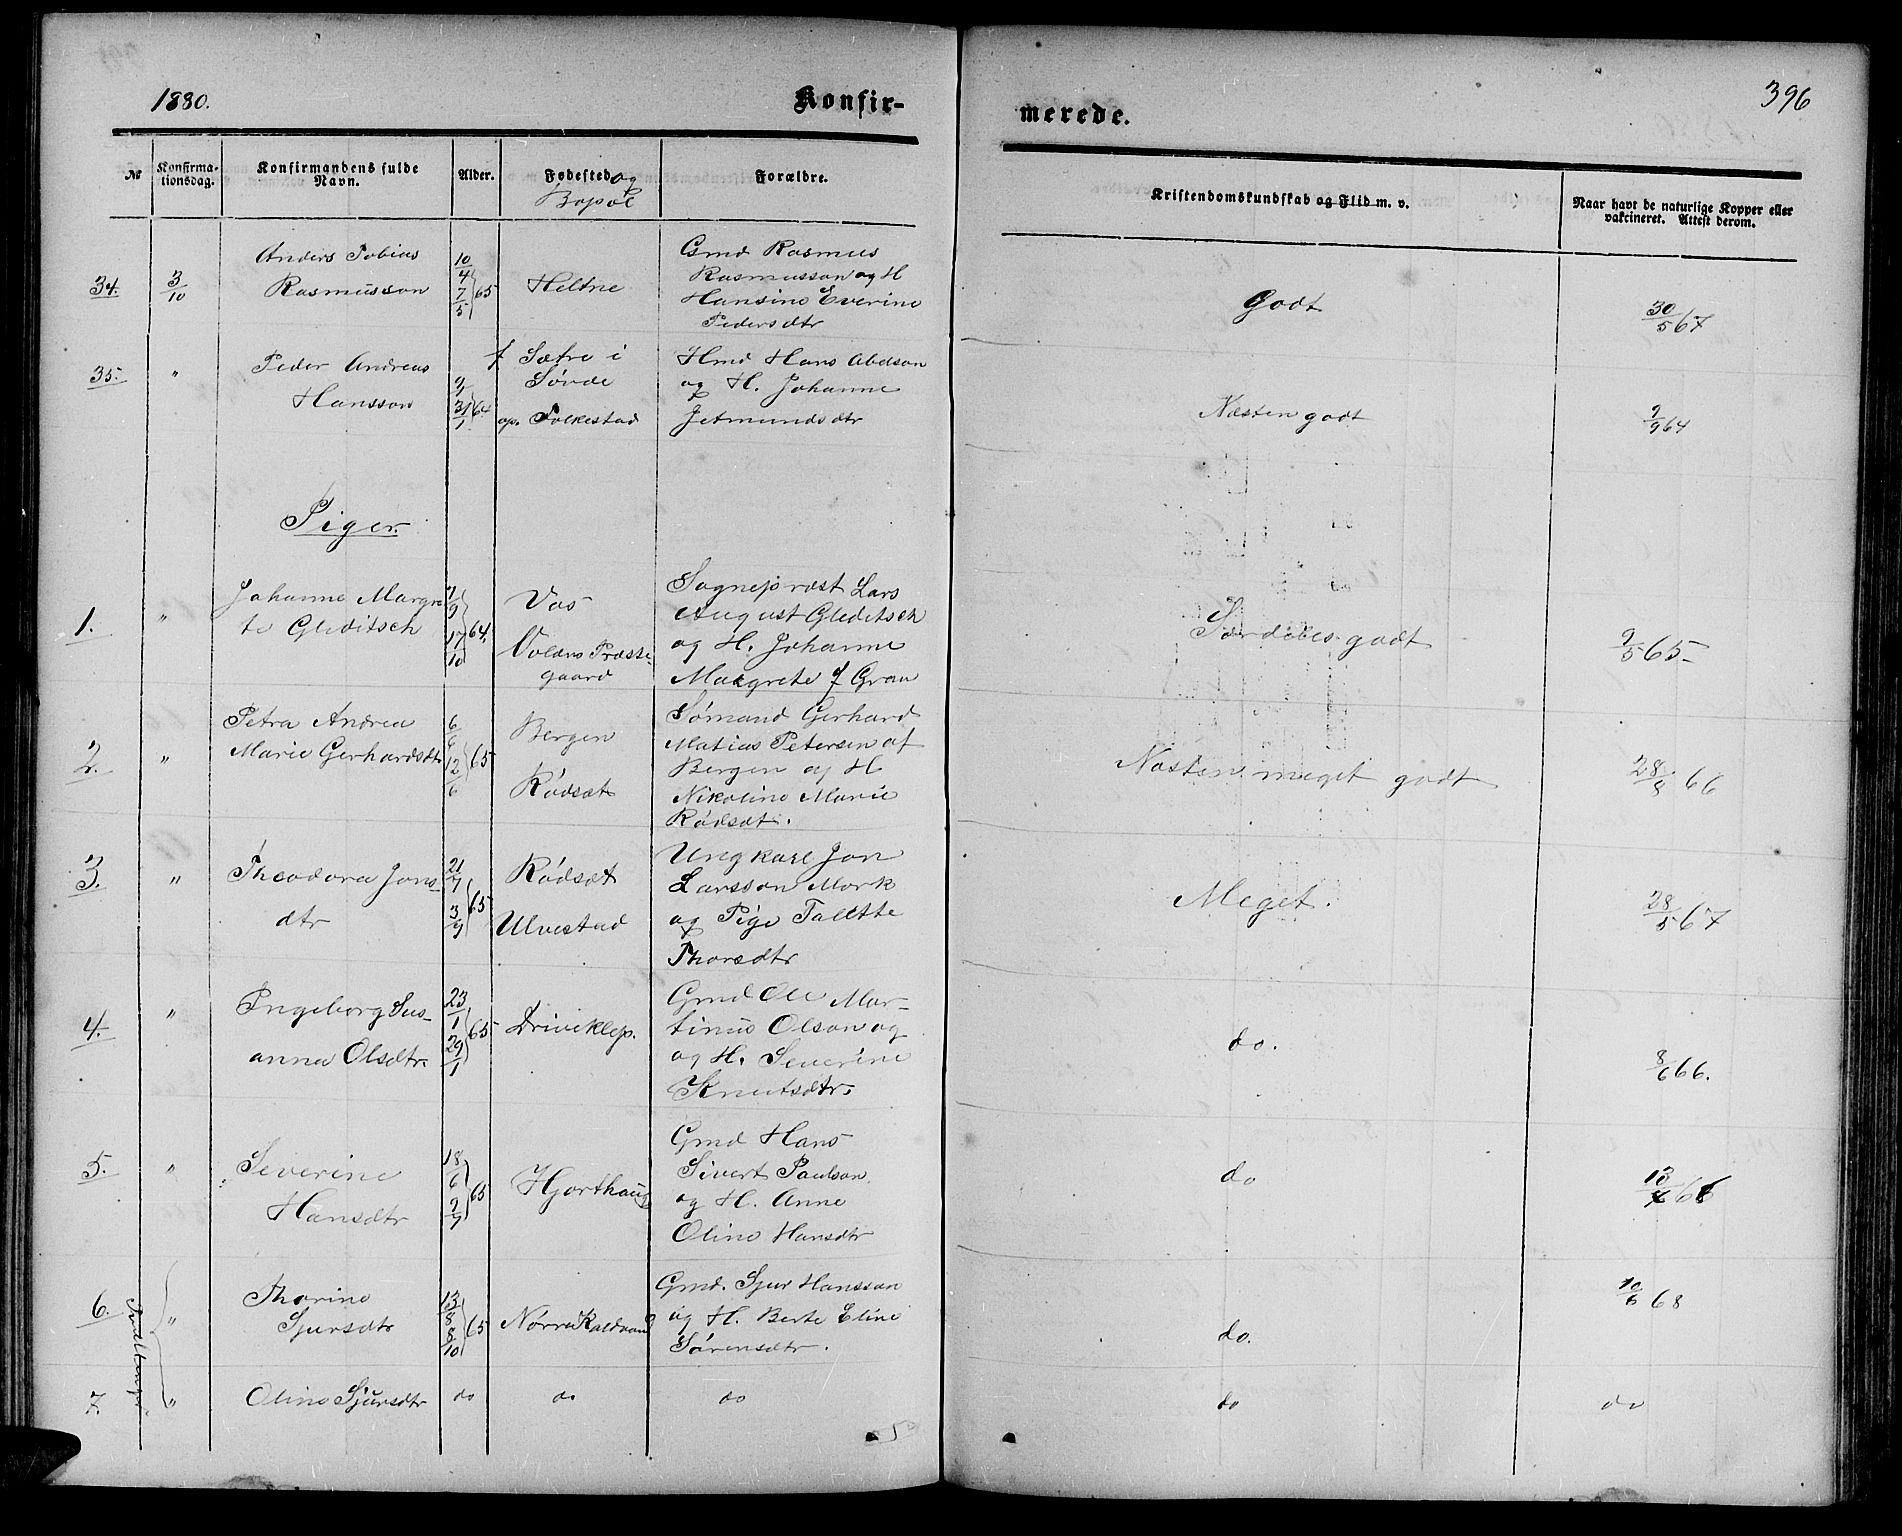 1880.
Konfir-
merede.
396
№
Konfirma-
tionsdag.
Konfirmandens fulde
Navn.
Alder.
Fødested og
Bopæl
Forældre.
Kristendomskundskab og Flid m. v.
Naar havt de naturlige Kopper eller
vakcineret. Attest derom.
34.
3/10
Anders Tobias
Rasmusson
10/4
7/5 65
Heltne
Gmd Rasmus
Rasmusson og H
Hansine Everine
Pedersdtr
Godt
30/5 67
35.
"
Peder Andreas
Hansson
9/1
31/1 64
f Sætre i
Søvde
op. Folkestad
Hmd Hans Abelson
og H. Johanne
Jetmundsdtr
Næsten godt
9/9 64
Piger.
1.
"
Johanne Margre
te Gleditsch
7/9
17/10 64.
Vos
Voldens Præste-
gaard
Sognepræst Lars
August Gleditsch
og H. Johanne
Margrete f Gran
Særdeles godt
9/5 65
2.
"
Petra Andrea
Marie Gerhardsdtr
6/6
12/6 65
Bergen
Rødsæt
Sømand Gerhard
Matias Petersen af
Bergen og H
Nikoline Marie
Rødsæt.
Næsten meget godt
28/8 66
3.
"
Theodora Jons-
dtr
21/7
3/9 65
Rødsæt
Ulvestad
Ungkarl Jon
Larsson Mork
og Pige Talette
Thorsdtr
Meget.
28/5 67
4.
"
Ingeborg Sus-
anna Olsdtr.
23/1
29/1 65
Driveklep.
Gmd Ole Mar-
tinus Olson og
og H. Severine
Knutsdtr.
do.
8/6 66.
5.
"
Severine
Hansdtr
18/6
9/7 65
Hjorthaug
Gmd Hans
Sivert Paulson
og H. Anne
Oline Hansdtr
do
13/6 66
6.
"
Thorine
Sjursdtr
13/8
8/10 65
Nørre Kaldvand
Gmd. Sjur Hansson
og H. Berte Eline
Sørensdtr.
do.
10/6 68
7.
"
Oline Sjursdtr
do
do
do
do
do